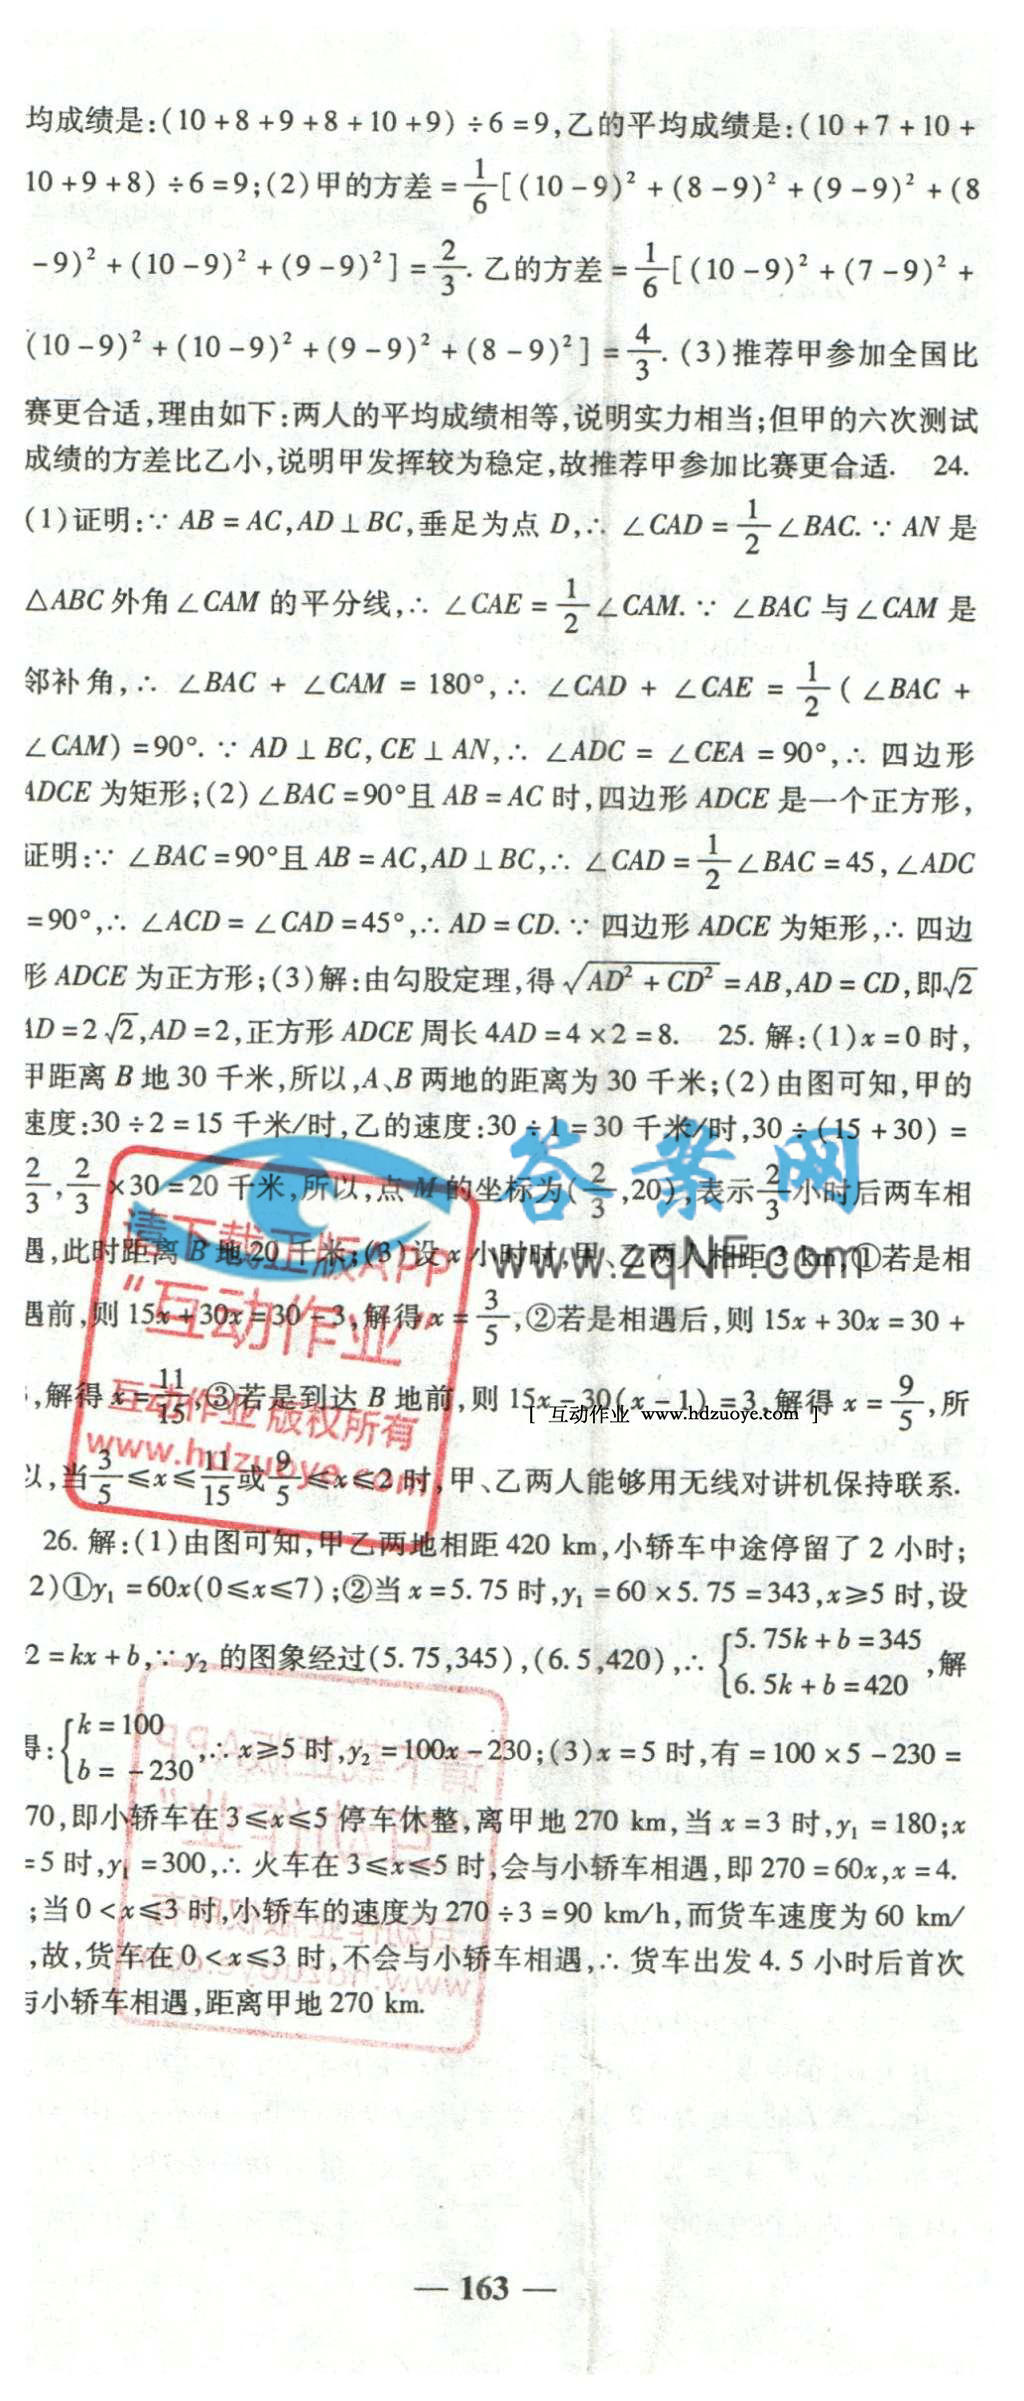 均成绩是:(10+8+9+8+10+9)÷6=9,乙的平均成绩是:(10+7+10+
10+9+8)÷6=9;(2)甲的方差=1/6[(10-9)²+(8-9)²+(9-9)²+(8
-9)²+(10-9)²+(9-9)²]=2/3.乙的方差=1/6[(10-9)²+(7-9)²+
(10-9)²+(10-9)²+(9-9)²+(8-9)²]=4/3.(3)推荐甲参加全国比
赛更合适,理由如下:两人的平均成绩相等,说明实力相当;但甲的六次测试
成绩的方差比乙小,说明甲发挥较为稳定,故推荐甲参加比赛更合适. 24.
(1)证明:∵AB=AC,AD⊥BC,垂足为点D,∴∠CAD=1/2∠BAC.∵AN是
△ABC外角∠CAM的平分线,∴∠CAE=1/2∠CAM.∵∠BAC与∠CAM是
邻补角,∴∠BAC+∠CAM=180°,∴∠CAD+∠CAE=1/2(∠BAC+
∠CAM)=90°.∵AD⊥BC,CE⊥AN,∴∠ADC=∠CEA=90°,∴四边形
ADCE为矩形;(2)∠BAC=90°且AB=AC时,四边形ADCE是一个正方形,
证明:∵∠BAC=90°且AB=AC,AD⊥BC,∴∠CAD=1/2∠BAC=45,∠ADC
=90°,∴∠ACD=∠CAD=45°,∴AD=CD.∵四边形ADCE为矩形,∴四边
形ADCE为正方形;(3)解:由勾股定理,得√(AD²+CD²)=AB,AD=CD,即√2
AD=2√2,AD=2,正方形ADCE周长4AD=4×2=8. 25.解:(1)x=0时,
甲距离B地30千米,所以,A、B两地的距离为30千米;(2)由图可知,甲的
速度:30÷2=15千米/时,乙的速度:30÷1=30千米/时,30÷(15+30)=
2/3,2/3×30=20千米,所以,点M的坐标为(2/3,20),表示2/3小时后两车相
遇,此时距离B地20千米;(3)设x小时时,甲、乙两人相距3 km,①若是相
遇前,则15x+30x=30-3,解得x=3/5,②若是相遇后,则15x+30x=30+
,解得x=11/15,③若是到达B地前,则15x-30(x-1)=3,解得x=9/5,所
以,当3/5≤x≤11/15或9/5≤x≤2时,甲、乙两人能够用无线对讲机保持联系.
26.解:(1)由图可知,甲乙两地相距420 km,小轿车中途停留了2小时;
2)①y₁=60x(0≤x≤7);②当x=5.75时,y₁=60×5.75=343,x≥5时,设
2=kx+b,∵y₂的图象经过(5.75,345),(6.5,420),∴{5.75k+b=345
6.5k+b=420,解
得:{k=100
b=-230,∴x≥5时,y₂=100x-230;(3)x=5时,有=100×5-230=
70,即小轿车在3≤x≤5停车休整,离甲地270 km,当x=3时,y₁=180;x
=5时,y₁=300,∴火车在3≤x≤5时,会与小轿车相遇,即270=60x,x=4.
;当0<x≤3时,小轿车的速度为270÷3=90 km/h,而货车速度为60 km/
,故,货车在0<x≤3时,不会与小轿车相遇,∴货车出发4.5小时后首次
与小轿车相遇,距离甲地270 km.
答案网
www.zqNF.com
请下载正版APP
"互动作业"
互动作业 版权所有
www.hdzuoye.com
[ 互动作业 www.hdzuoye.com ]
— 163 —